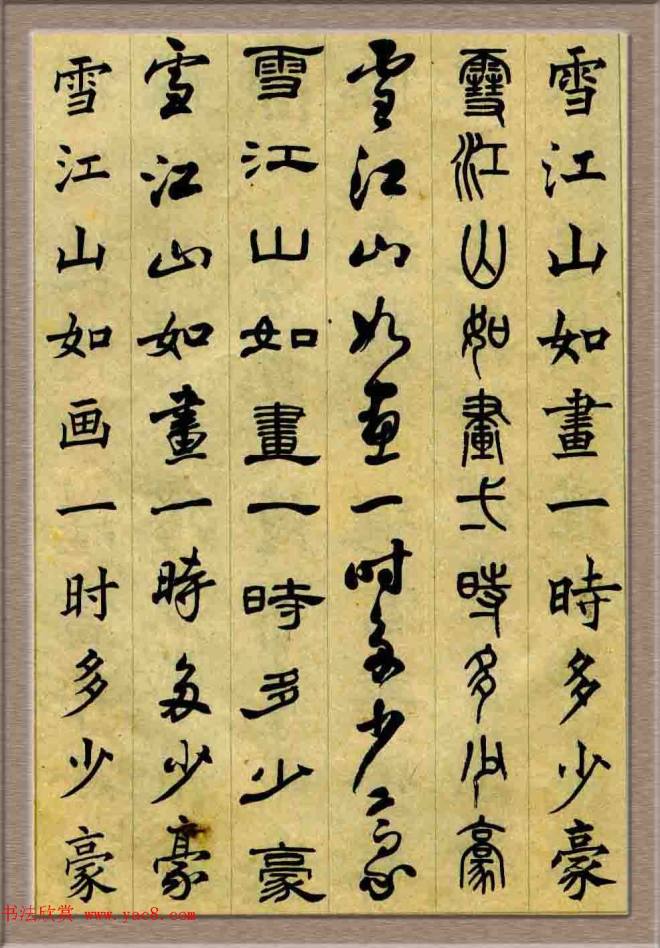 雪江山如畫一時多少豪
雪江山如畫弌時多少豪
雪江山如畫一时多少豪
雪江山如畫一時多少豪
雪江山如畫一時多少豪
雪江山如画一时多少豪
书法欣赏 www.yac8.com